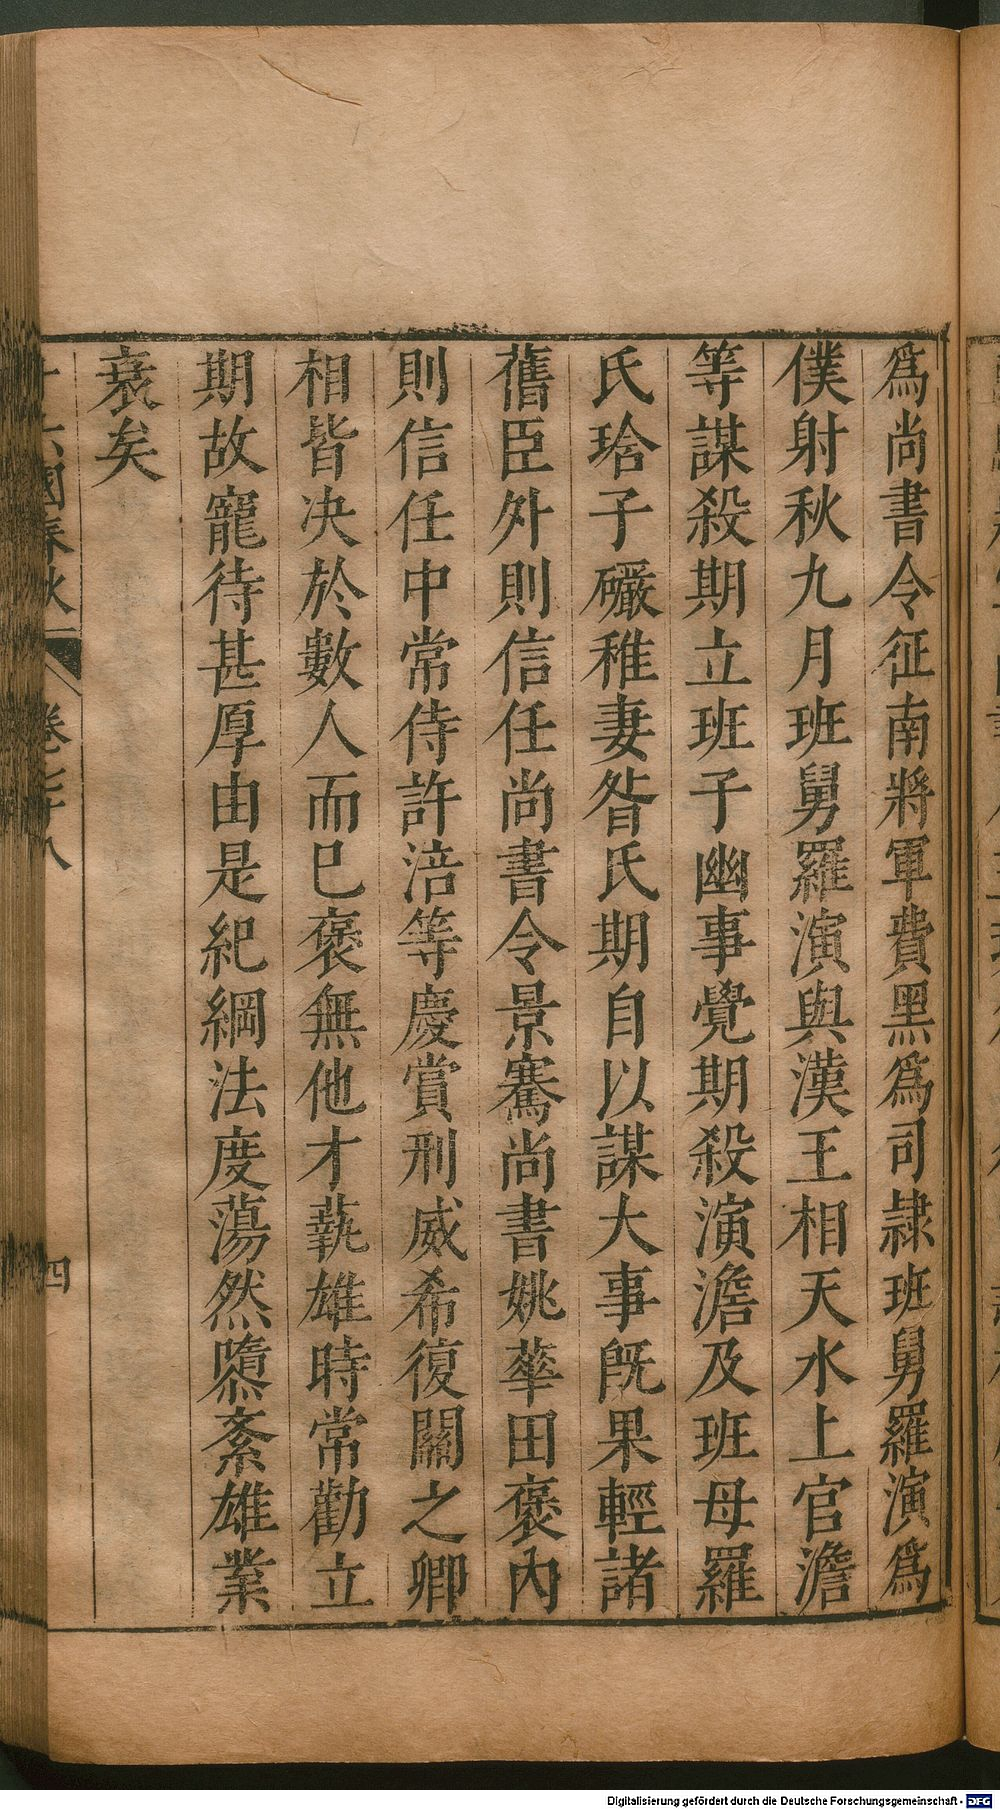 爲尚書令征南將軍費黑爲司隷班舅羅演爲
僕射秋九月班舅羅演與漢王相天水上官澹
等謀殺期立班子幽事覺期殺演澹及班母羅
氏琀子礹稚妻昝氏期自以謀大事既果輕諸
舊臣外則信任尚書令景騫尚書姚華田褒內
則信任中常侍許涪等慶賞刑威希復關之卿
相皆决於數人而巳褒無他才蓺雄時常勸立
期故寵待甚厚由是紀綱法度蕩然隳紊雄業
衰矣
十六國春秋 卷七十八 四
Digitalisierung gefördert durch die Deutsche Forschungsgemeinschaft - DFG